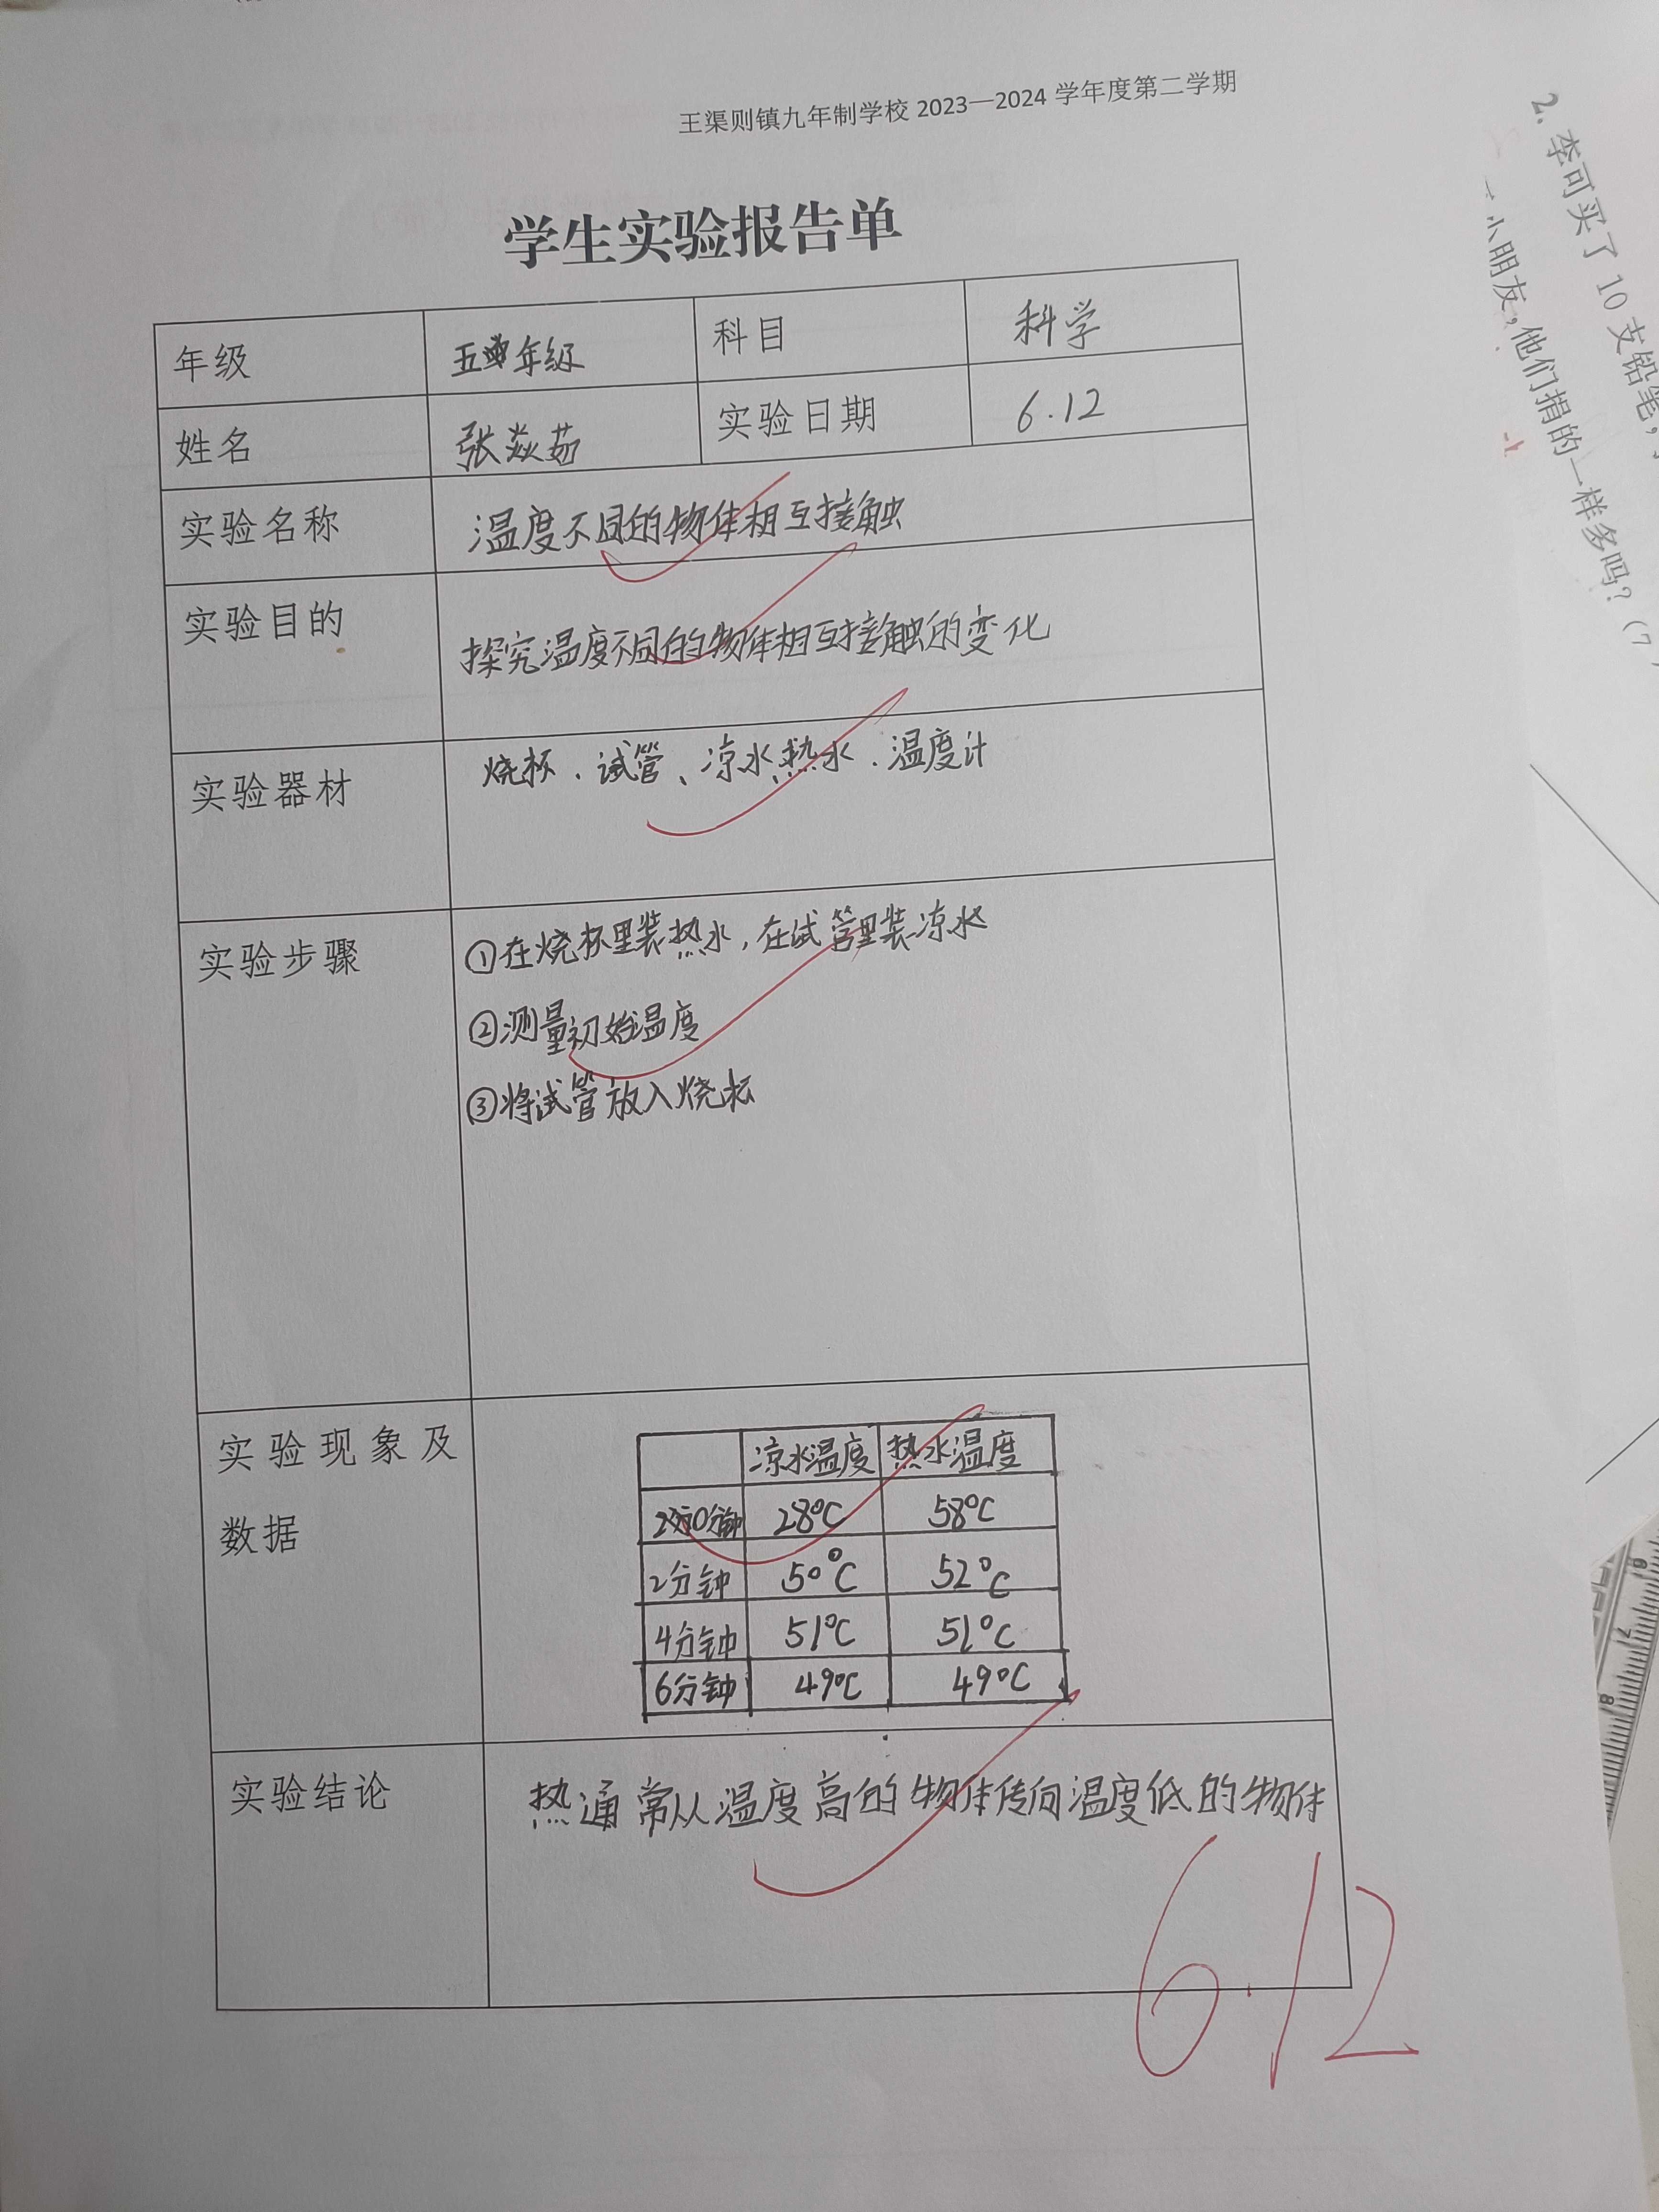 王渠则镇九年制学校 2023—2024 学年度第二学期
学生实验报告单
年级 五年级 科目 科学
姓名 张焱茹 实验日期 6.12
实验名称 温度不同的物体相互接触
实验目的 探究温度不同的物体相互接触的变化
实验器材 烧杯、试管、凉水、热水、温度计
实验步骤 ①在烧杯里装热水,在试管里装凉水
②测量初始温度
③将试管放入烧杯
实验现象及
数据
凉水温度 热水温度
0分钟 28℃ 58℃
2分钟 50℃ 52℃
4分钟 51℃ 51℃
6分钟 49℃ 49℃
实验结论 热通常从温度高的物体传向温度低的物体
6.12
2. 李可买了 10 支铅笔,
小朋友,他们捐的一样多吗?(7
6
7
8